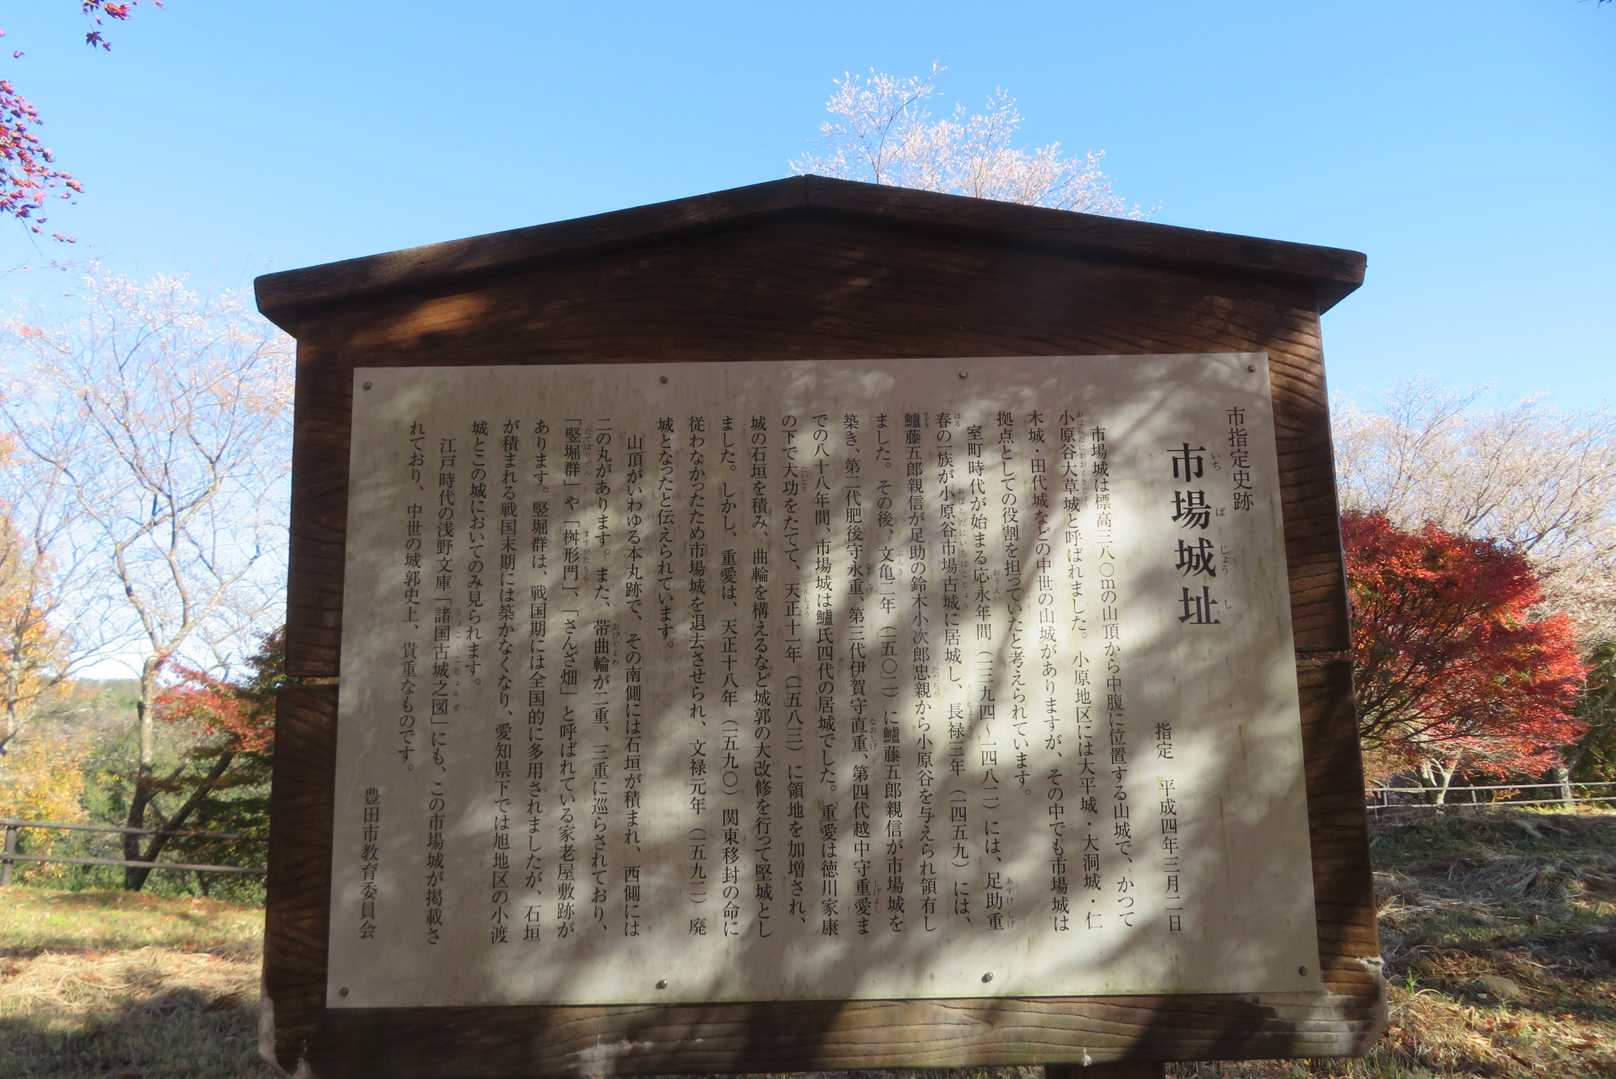 市指定史跡
市場城址
指定　平成四年三月二日
市場城は標高三八〇mの山頂から中腹に位置する山城で、かつて
小原谷大草城と呼ばれました。小原地区には大平城・大洞城・仁
木城・田代城などの中世の山城がありますが、その中でも市場城は
拠点としての役割を担っていたと考えられています。
室町時代が始まる応永年間（一三九四～一四八二）には、足助重
春の一族が小原谷市場古城に居城し、長禄三年（一四五九）には、
鱸藤五郎親信が足助の鈴木小次郎忠親から小原谷を与えられ領有し
ました。その後、文亀二年（一五〇二）に鱸藤五郎親信が市場城を
築き、第二代肥後守永重、第三代伊賀守直重、第四代越中守重愛ま
での八十八年間、市場城は鱸氏四代の居城でした。重愛は徳川家康
の下で大功をたてて、天正十一年（一五八三）に領地を加増され、
城の石垣を積み、曲輪を構えるなど城郭の大改修を行って堅城とし
ました。しかし、重愛は、天正十八年（一五九〇）関東移封の命に
従わなかったため市場城を退去させられ、文禄元年（一五九二）廃
城となったと伝えられています。
山頂がいわゆる本丸跡で、その南側には石垣が積まれ、西側には
二の丸があります。また、帯曲輪が二重、三重に巡らされており、
「竪堀群」や「桝形門」、「さんざ畑」と呼ばれている家老屋敷跡が
あります。竪堀群は、戦国期には全国的に多用されましたが、石垣
が積まれる戦国末期には築かなくなり、愛知県下では旭地区の小渡
城とこの城においてのみ見られます。
江戸時代の浅野文庫「諸国古城之図」にも、この市場城が掲載さ
れており、中世の城郭史上、貴重なものです。
豊田市教育委員会